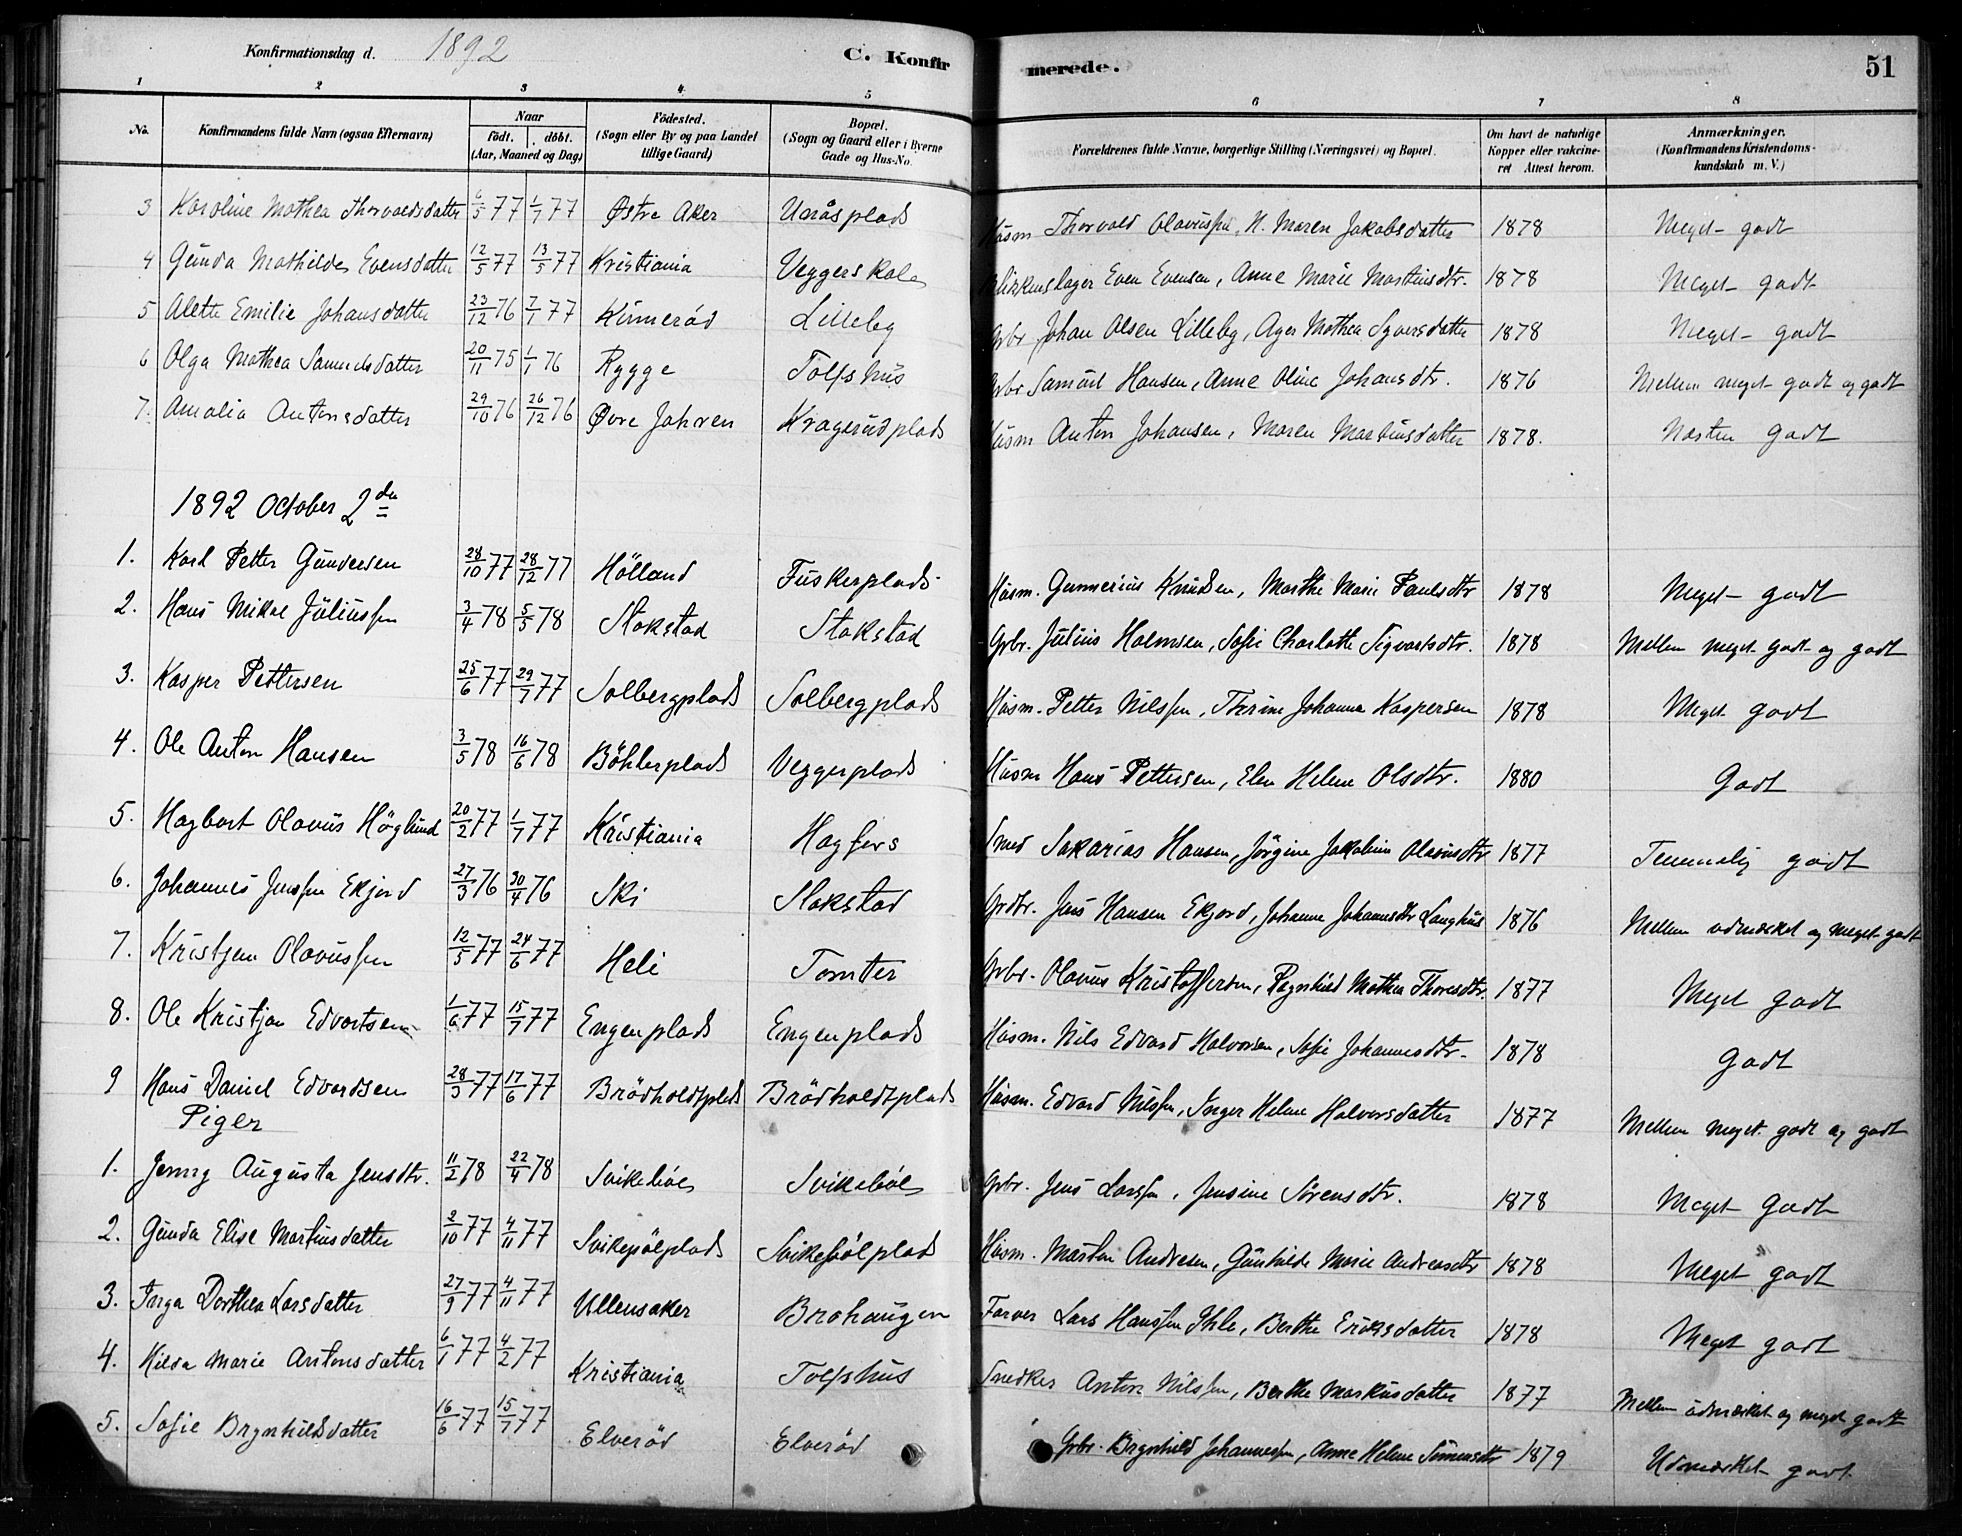 Konfirmationsdag d. 1892 C. Konfirmerede. 51
1 2 3 4 5 6 7 8
No. Konfirmandens fulde Navn (ogsaa Efternavn) Naar født. døbt. (Aar, Maaned og Dag) Fødested. (Sogn eller By og paa Landet tillige Gaard) Bopæl. (Sogn og Gaard eller i Byerne Gade og Hus-No. Forældrenes fulde Navne, borgerlige Stilling (Næringsvei) og Bopæl. Om havt de naturlige Kopper eller vakcineret Attest herom. Anmærkninger. (Konfirmandens Kristendomskundskab m. V.)
3 Karoline Mathea Thorvaldsdatter 6/5 77 1/7 77 Østre Aker Unåsplads Husm Thorvald Olavussen, N. Maren Jakobsdatter 1878 Meget godt
4 Gunda Mathilde Evensdatter 12/5 77 13/5 77 Kristiania Veggerskole Blikkenslager Even Evensen, Anne Marie Martinsdtr. 1878 Meget godt
5 Alette Emilie Johansdatter 23/12 76 7/1 77 Kinnerød Lilleby Grbr Johan Olsen Lilleby, Ager Mathea Syversdatter 1878 Meget godt
6 Olga Mathea Samuelsdatter 20/11 75 1/1 76 Rygge Tolfshus Grbr Samuel Hansen, Anne Oline Johansdtr. 1876 Mellem meget godt og godt
7. Amalia Antonsdatter 29/10 76 26/12 76 Øvre Jahren Kragerudplads Husm Anton Johansen, Maren Martinsdatter 1878. Næsten godt
1892 October 2den
1. Karl Petter Gundersen 28/10 77 28/12 77 Hölland Fuskerplads Husm. Gunnerius Knudsen, Marthe Marie Paulsdtr 1878 Meget godt
2. Hans Mikal Juliussen 3/4 78 5/5 78 Stokstad Stokstad Grbr. Julius Holmsen, Sofie Charlotte Sigvartsdtr. 1878 Mellem meget godt og godt
3. Kasper Pettersen 25/6 77 29/7 77 Solbergplads Solbergplads Husm. Petter Nilssen, Thrine Johanne Kaspersen 1878 Meget godt
4. Ole Anton Hansen 3/5 78 16/6 78 Böhlerplads Veggerplads Husm Hans Pettersen, Elen Helene Olsdtr. 1880 Godt
5. Hagbart Olavus Höglund 20/2 77 1/7 77 Kristiania Hagfors Smed Sakarias Hansen, Jörgine Jakobine Olausdtr 1877 Temmelig godt
6. Johannes Jenssen Ekjord 27/3 76 30/4 76 Ski Stokstad Grdbr. Jens Hansen Ekjord, Johanne Johannesdtr Langhus 1876 Mellem udmærket og meget godt
7. Kristjan Olavussen 12/5 77 24/6 77 Heli Tomter Grbr. Olavus Kristoffersen, Ragnhild Mathea Thoresdtr. 1877 Meget godt
8. Ole Kristjan Edvartsen 1/6 77 15/7 77 Engenplads Engenplads Husm. Nils Edvard Halvorsen, Sofie Johannesdtr. 1878 Godt
9 Hans Daniel Edvardsen 28/3 77 17/6 77 Brödholdtplads Brödholdtplads Husm. Edvard Nilssen, Inger Helene Halvorsdatter 1877 Mellem meget godt og godt
Piger
1. Jenny Augusta Jensdtr. 11/2 78 22/4 78 Svikeböl Svikeböl Grbr. Jens Larssen, Jensine Sörensdtr. 1878 Meget Godt
2. Gunda Elise Martinsdatter 2/10 77 4/11 77 Svikebölplads Svikebölplads Husm. Martin Andresen, Gunhilde Marie Andreasdtr 1878 Meget godt
3. Inga Dorthea Larsdatter 27/9 77 4/11 77 Ullensaker Brohaugen Farver Lars Hanssen Ihle, Berthe Eriksdatter 1878 Meget godt
4. Hilda Marie Antonsdatter 6/1 77 4/2 77 Kristiania Tolfshus Snedker Anton Nilssen, Berthe Markusdatter 1877 Mellem udmærket og meget godt
5. Sofie Brynhildsdatter 16/6 77 15/7 77 Elverød Elverød Grbr. Brynhild Johannessen, Anne Helene Simensdtr 1879 Udmærket godt